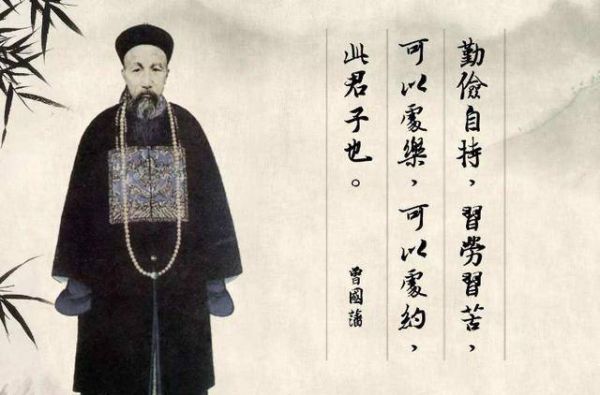 勤儉自持，習勞習苦，
可以處樂，可以處約，
此君子也。
曾國藩